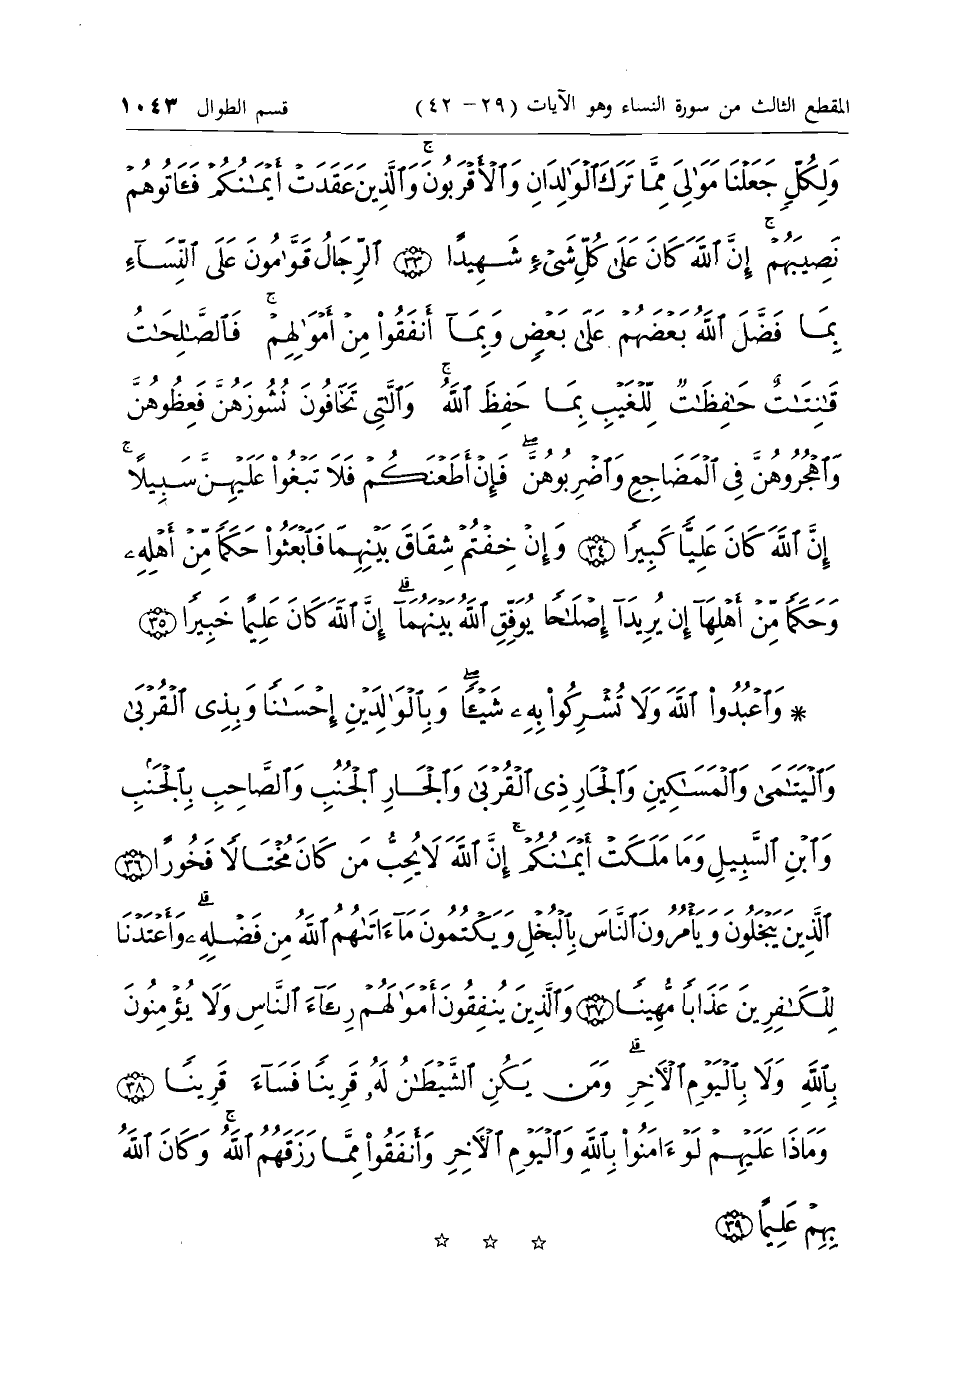 المقطع الثالث من سورة النساء وهو الآيات (٢٩ - ٤٢) قسم الطوال ١٠٤٣
وَلِكُلٍّ جَعَلْنَا مَوَٰلِىَ مِمَّا تَرَكَ ٱلْوَٰلِدَانِ وَٱلْأَقْرَبُونَ ۚ وَٱلَّذِينَ عَقَدَتْ أَيْمَٰنُكُمْ فَـَٔاتُوهُمْ
نَصِيبَهُمْ ۚ إِنَّ ٱللَّهَ كَانَ عَلَىٰ كُلِّ شَىْءٍ شَهِيدًا ٣٣ ٱلرِّجَالُ قَوَّٰمُونَ عَلَى ٱلنِّسَآءِ
بِمَا فَضَّلَ ٱللَّهُ بَعْضَهُمْ عَلَىٰ بَعْضٍ وَبِمَآ أَنفَقُوا۟ مِنْ أَمْوَٰلِهِمْ ۚ فَٱلصَّٰلِحَٰتُ
قَٰنِتَٰتٌ حَٰفِظَٰتٌ لِّلْغَيْبِ بِمَا حَفِظَ ٱللَّهُ ۚ وَٱلَّٰتِى تَخَافُونَ نُشُوزَهُنَّ فَعِظُوهُنَّ
وَٱهْجُرُوهُنَّ فِى ٱلْمَضَاجِعِ وَٱضْرِبُوهُنَّ ۖ فَإِنْ أَطَعْنَكُمْ فَلَا تَبْغُوا۟ عَلَيْهِنَّ سَبِيلًا ۚ
إِنَّ ٱللَّهَ كَانَ عَلِيًّا كَبِيرًا ٣٤ وَإِنْ خِفْتُمْ شِقَاقَ بَيْنِهِمَا فَٱبْعَثُوا۟ حَكَمًا مِّنْ أَهْلِهِۦ
وَحَكَمًا مِّنْ أَهْلِهَآ إِن يُرِيدَآ إِصْلَٰحًا يُوَفِّقِ ٱللَّهُ بَيْنَهُمَآ ۗ إِنَّ ٱللَّهَ كَانَ عَلِيمًا خَبِيرًا ٣٥
* وَٱعْبُدُوا۟ ٱللَّهَ وَلَا تُشْرِكُوا۟ بِهِۦ شَيْـًٔا ۖ وَبِٱلْوَٰلِدَيْنِ إِحْسَٰنًا وَبِذِى ٱلْقُرْبَىٰ
وَٱلْيَتَٰمَىٰ وَٱلْمَسَٰكِينِ وَٱلْجَارِ ذِى ٱلْقُرْبَىٰ وَٱلْجَارِ ٱلْجُنُبِ وَٱلصَّاحِبِ بِٱلْجَنۢبِ
وَٱبْنِ ٱلسَّبِيلِ وَمَا مَلَكَتْ أَيْمَٰنُكُمْ ۚ إِنَّ ٱللَّهَ لَا يُحِبُّ مَن كَانَ مُخْتَالًا فَخُورًا ٣٦
ٱلَّذِينَ يَبْخَلُونَ وَيَأْمُرُونَ ٱلنَّاسَ بِٱلْبُخْلِ وَيَكْتُمُونَ مَآ ءَاتَىٰهُمُ ٱللَّهُ مِن فَضْلِهِۦ ۗ وَأَعْتَدْنَا
لِلْكَٰفِرِينَ عَذَابًا مُّهِينًا ٣٧ وَٱلَّذِينَ يُنفِقُونَ أَمْوَٰلَهُمْ رِئَآءَ ٱلنَّاسِ وَلَا يُؤْمِنُونَ
بِٱللَّهِ وَلَا بِٱلْيَوْمِ ٱلْـَٔاخِرِ ۗ وَمَن يَكُنِ ٱلشَّيْطَٰنُ لَهُۥ قَرِينًا فَسَآءَ قَرِينًا ٣٨
وَمَاذَا عَلَيْهِمْ لَوْ ءَامَنُوا۟ بِٱللَّهِ وَٱلْيَوْمِ ٱلْـَٔاخِرِ وَأَنفَقُوا۟ مِمَّا رَزَقَهُمُ ٱللَّهُ ۚ وَكَانَ ٱللَّهُ
بِهِمْ عَلِيمًا ٣٩
☆ ☆ ☆